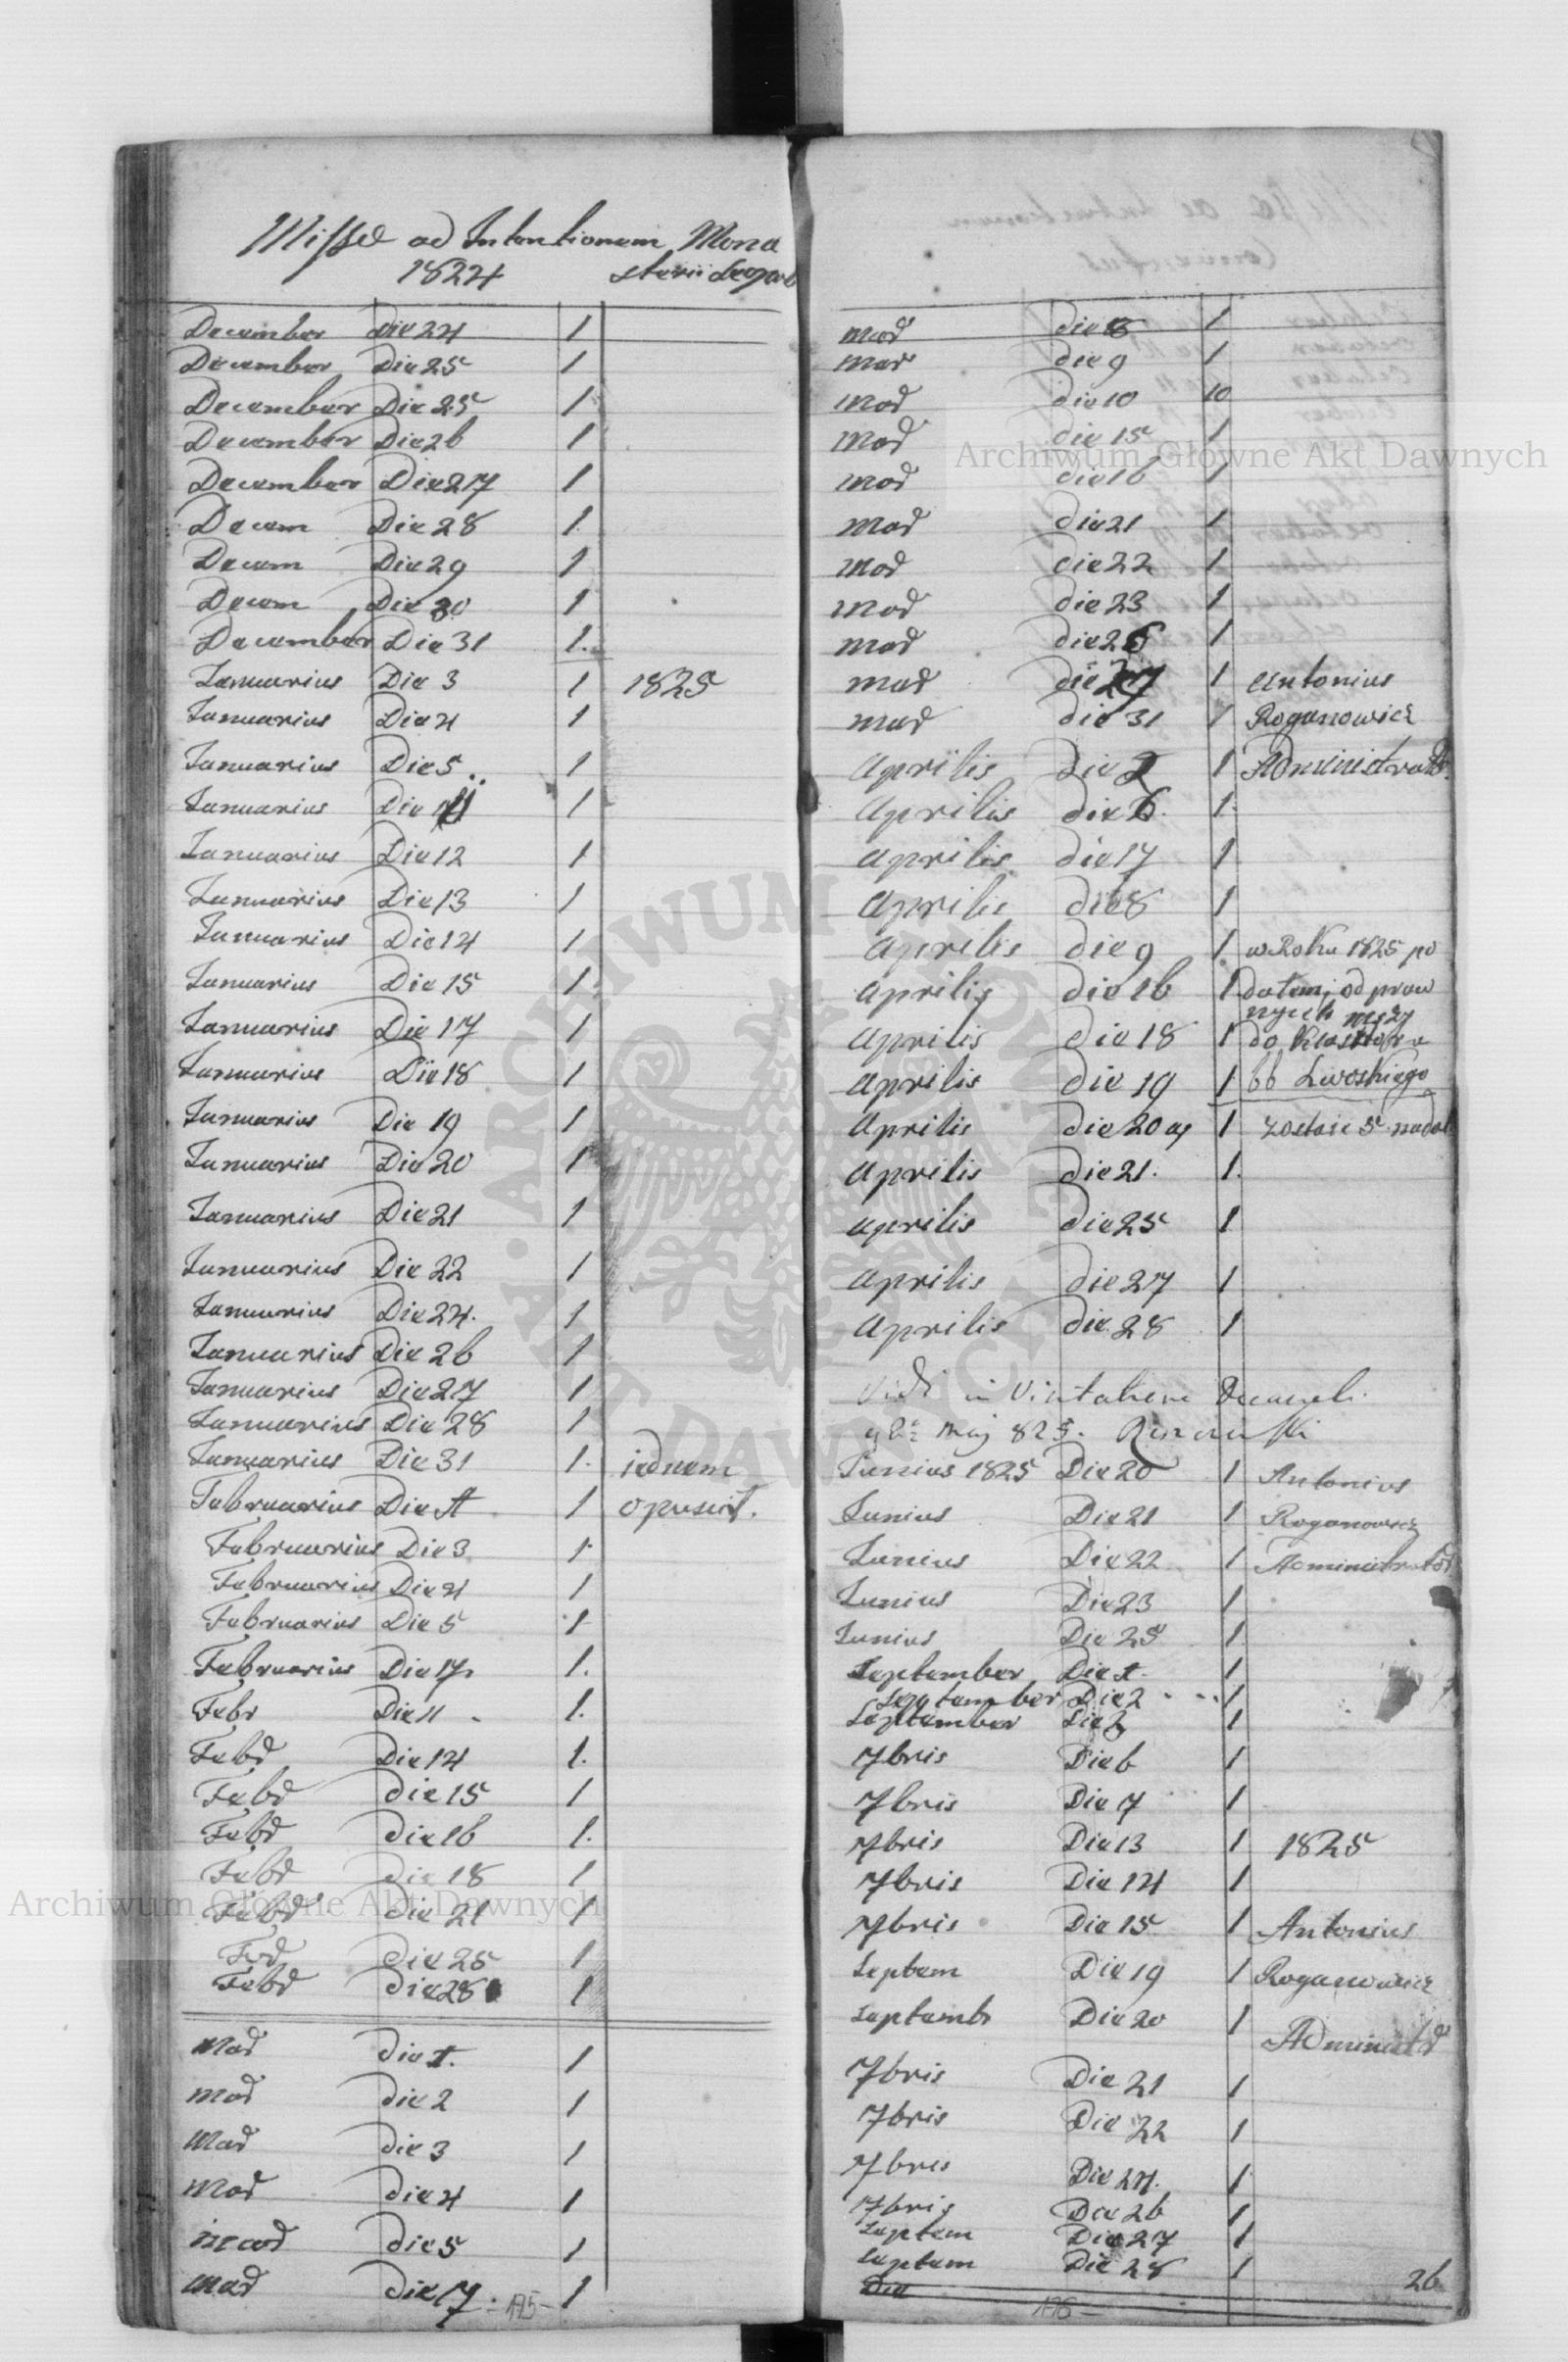 Missae ad Intentionem Mona
1824 sterii Leopol
December Die 24 1
December Die 25 1
December Die 25 1
December Die 26 1
December Die 27 1
Decem Die 28 1
Decem Die 29 1
Decem Die 30 1
December Die 31 1.
Januarius Die 3 1 1825
Januarius Die 4 1
Januarius Die 5 1
Januarius Die 1
Januarius Die 12 1
Januarius Die 13 1
Januarius Die 14 1
Januarius Die 15 1
Januarius Die 17 1
Januarius Die 18 1
Januarius Die 19 1
Januarius Die 20 1
Januarius Die 21 1
Januarius Die 22 1
Januarius Die 24. 1
Januarius Die 26 1
Januarius Die 27 1
Januarius Die 28 1
Januarius Die 31 1.
Februarius Die 1 1
Februarius Die 3 1
Februarius Die 4 1
Februarius Die 5 1
Februarius Die 7 1.
Febr Die 11 1.
Febr Die 14 1.
Febr die 15 1
Febr die 16 1.
Febr die 18 1
Febr die 21 1
die 25 1
Febr die 28 1
Mar die 1. 1
Mar die 2 1
Mar die 3 1
Mar die 4 1
Mar die 5 1
Mar die 7. 1
- 175 -
Mar die 8 1
Mar die 9 1
Mar die 10 10
Mar die 15 1
Mar die 16 1
Mar die 21 1
Mar die 22 1
Mar die 23 1
Mar die 1
Mar die 27 1 Antonius
Mar die 31 1 Roganowicz
Aprilis die 2 1 Administrator
Aprilis die 6. 1.
Aprilis die 7 1
Aprilis die 8 1
Aprilis die 9 1 w Roku 1825 po
Aprilis die 16 1 odpraw
nych mszy
Aprilis die 18 1 do Klasztoru
Aprilis die 19 1 bb Lwoskiego
Aprilis die 20 1 zostaie 5
Aprilis die 21. 1.
Aprilis die 25 1
Aprilis die 27 1
Aprilis die 28 1
Vidi in
Maj 825.
Junius 1825 Die 20 1 Antonius
Junius Die 21 1 Roganowicz
Junius Die 22 1 Administrator
Junius Die 23 1
Junius Die 25 1
September Die 1. 1
September Die 2 1
September Die 3 1
7bris Die 6 1
7bris Die 7 1
7bris Die 13 1 1825
7bris Die 14 1
7bris Die 15 1 Antonius
Septem Die 19 1 Roganowicz
Septemb Die 20 1
Administr
7bris Die 21 1
7bris Die 22 1
7bris Die 24. 1
7bris Die 26 1
Septem Die 27 1
Septem Die 28 1
Die 26
176 -
Archiwum Główne Akt Dawnych
Archiwum Główne Akt Dawnych
ARCHIWUM GŁÓWNE AKT DAWNYCH